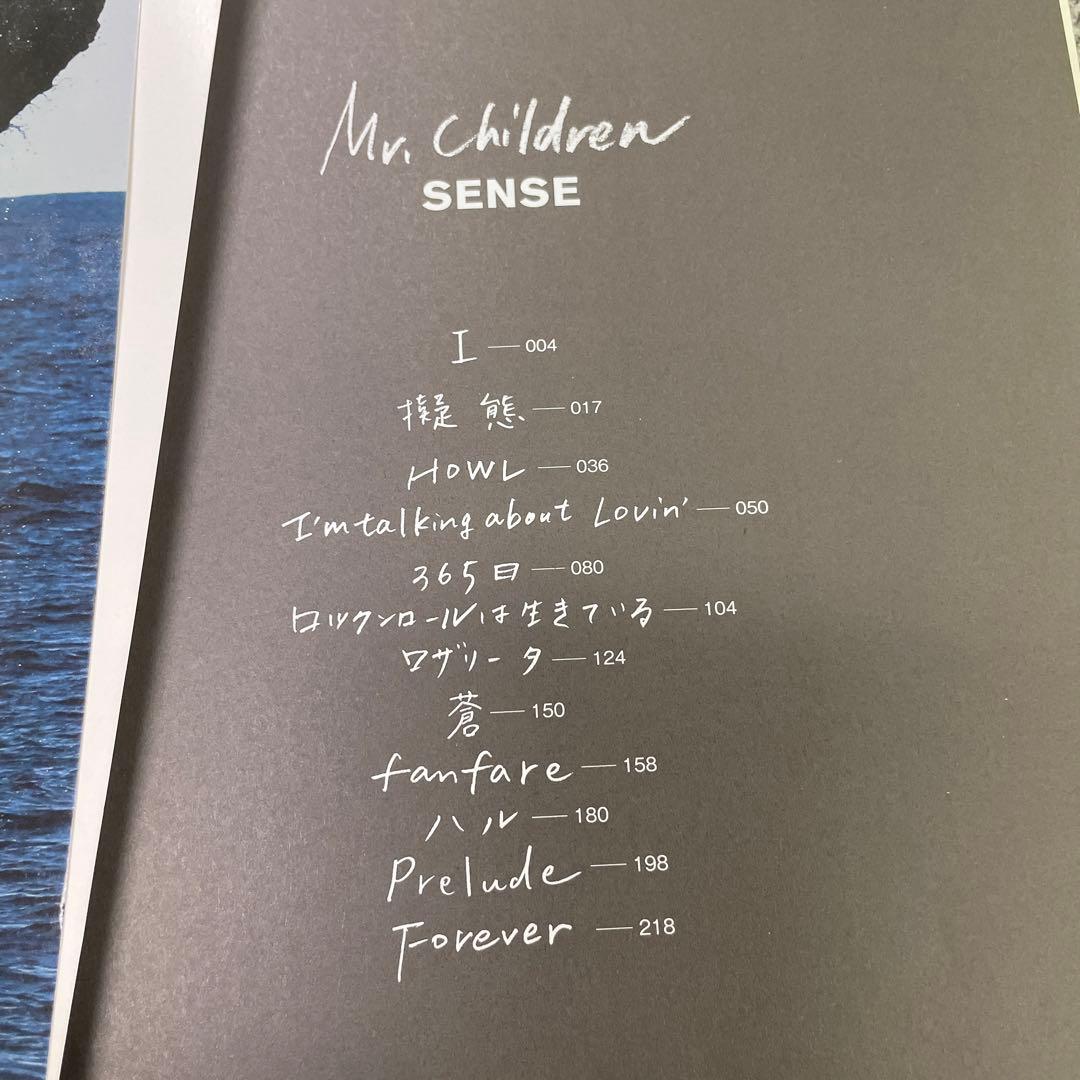 Mr. Children
SENSE
I — 004
擬態 — 017
HOWL — 036
I'm talking about Lovin' — 050
365日 — 080
ロックンロールは生きている — 104
ロザリータ — 124
蒼 — 150
fanfare — 158
ハル — 180
Prelude — 198
Forever — 218